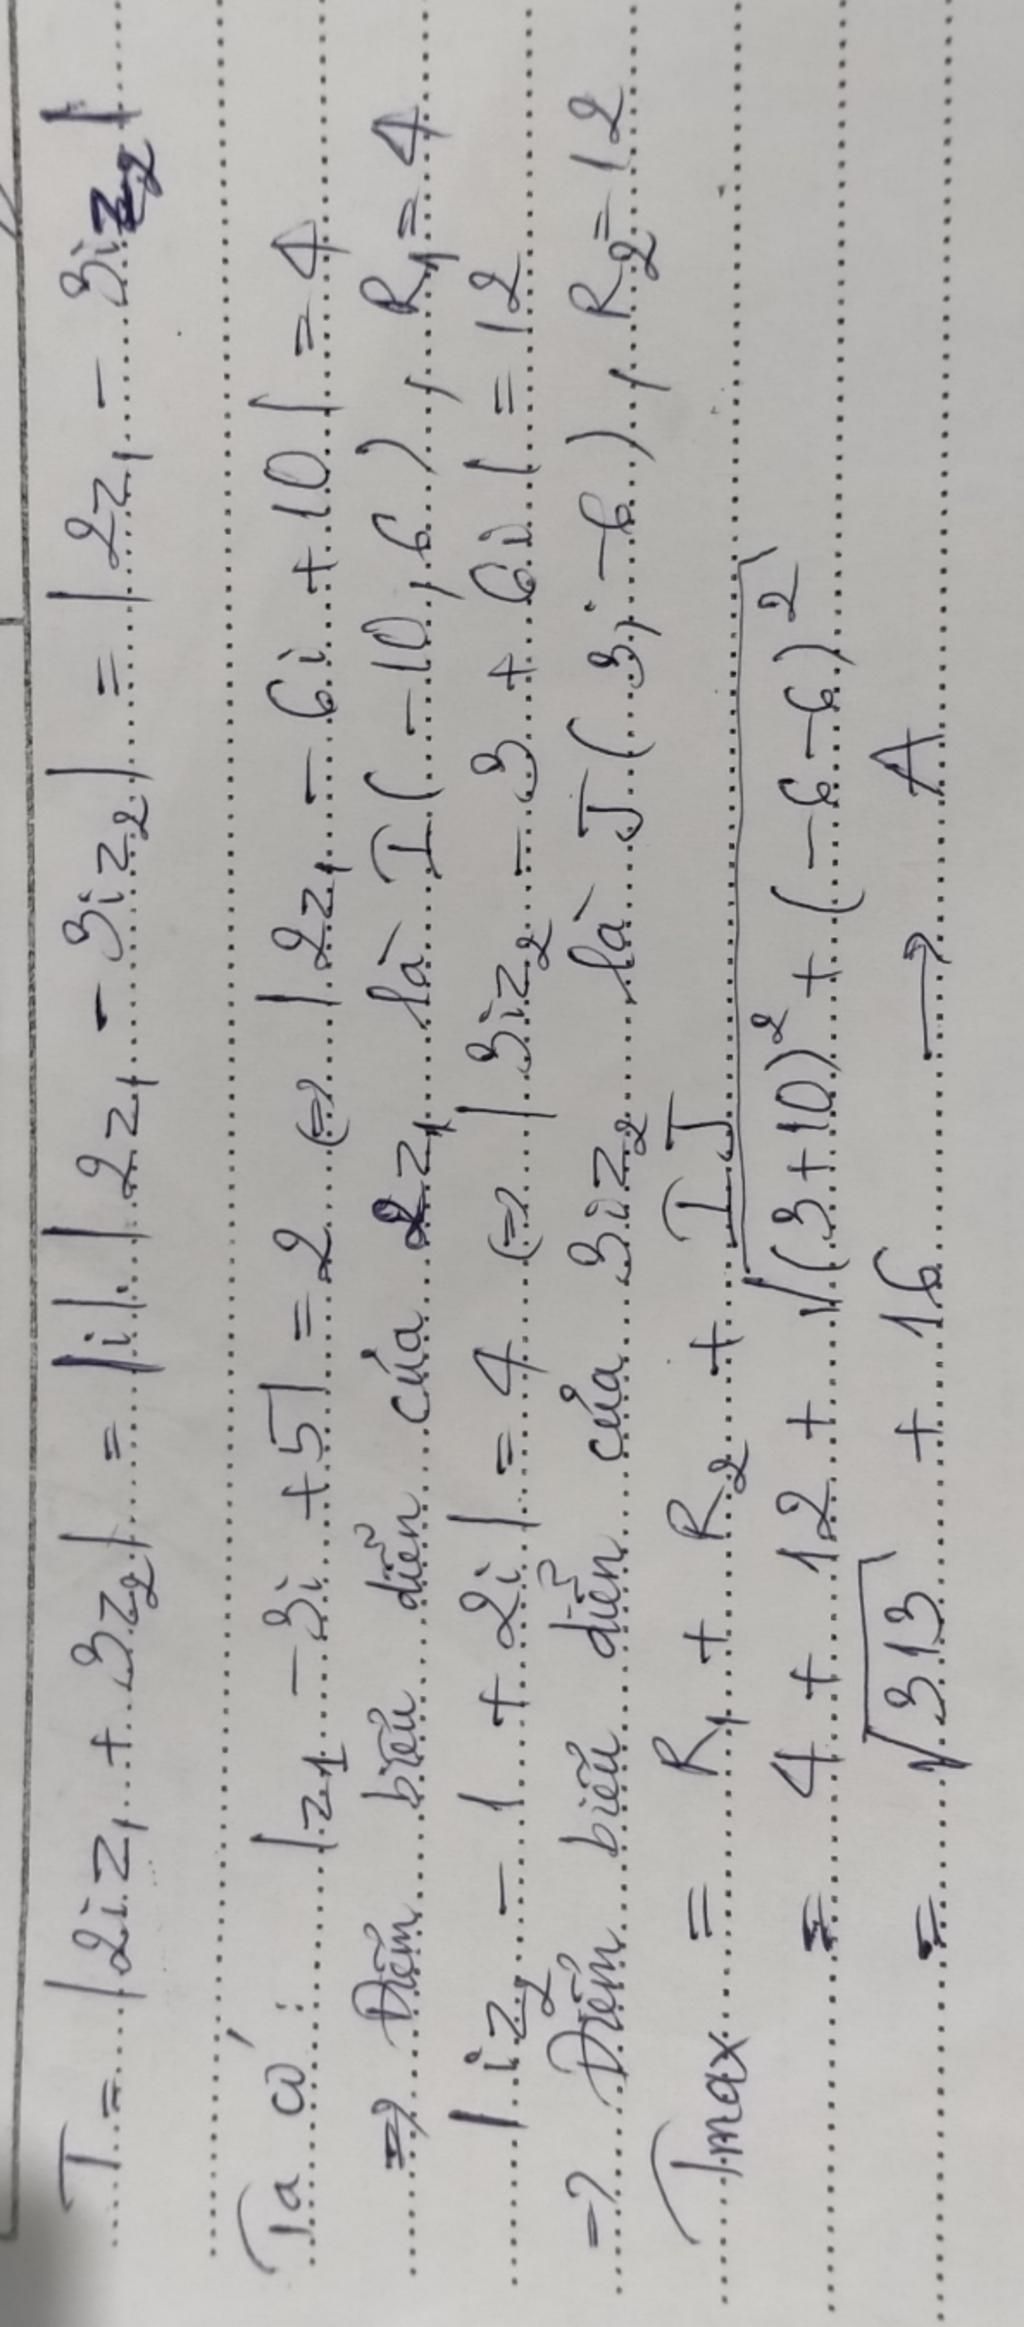 T = |2iz₁ + 3z₂| = |i|.|2z₁ - 3iz₂| = |2z₁ - 3iz₂|
Ta có: |z₁ - 3i + 5| = 2 (=) |2z₁ - 6i + 10| = 4
=> Điểm biểu diễn của 2z₁ là I(-10, 6), R₁ = 4
|iz₂ - 1 + 2i| = 4 (=) |3iz₂ - 3 + 6i| = 12
=> Điểm biểu diễn của 3iz₂ là J(3; -6), R₂ = 12
Tmax = R₁ + R₂ + IJ
= 4 + 12 + √((3+10)² + (-6-6)²)
= √313 + 16 → A